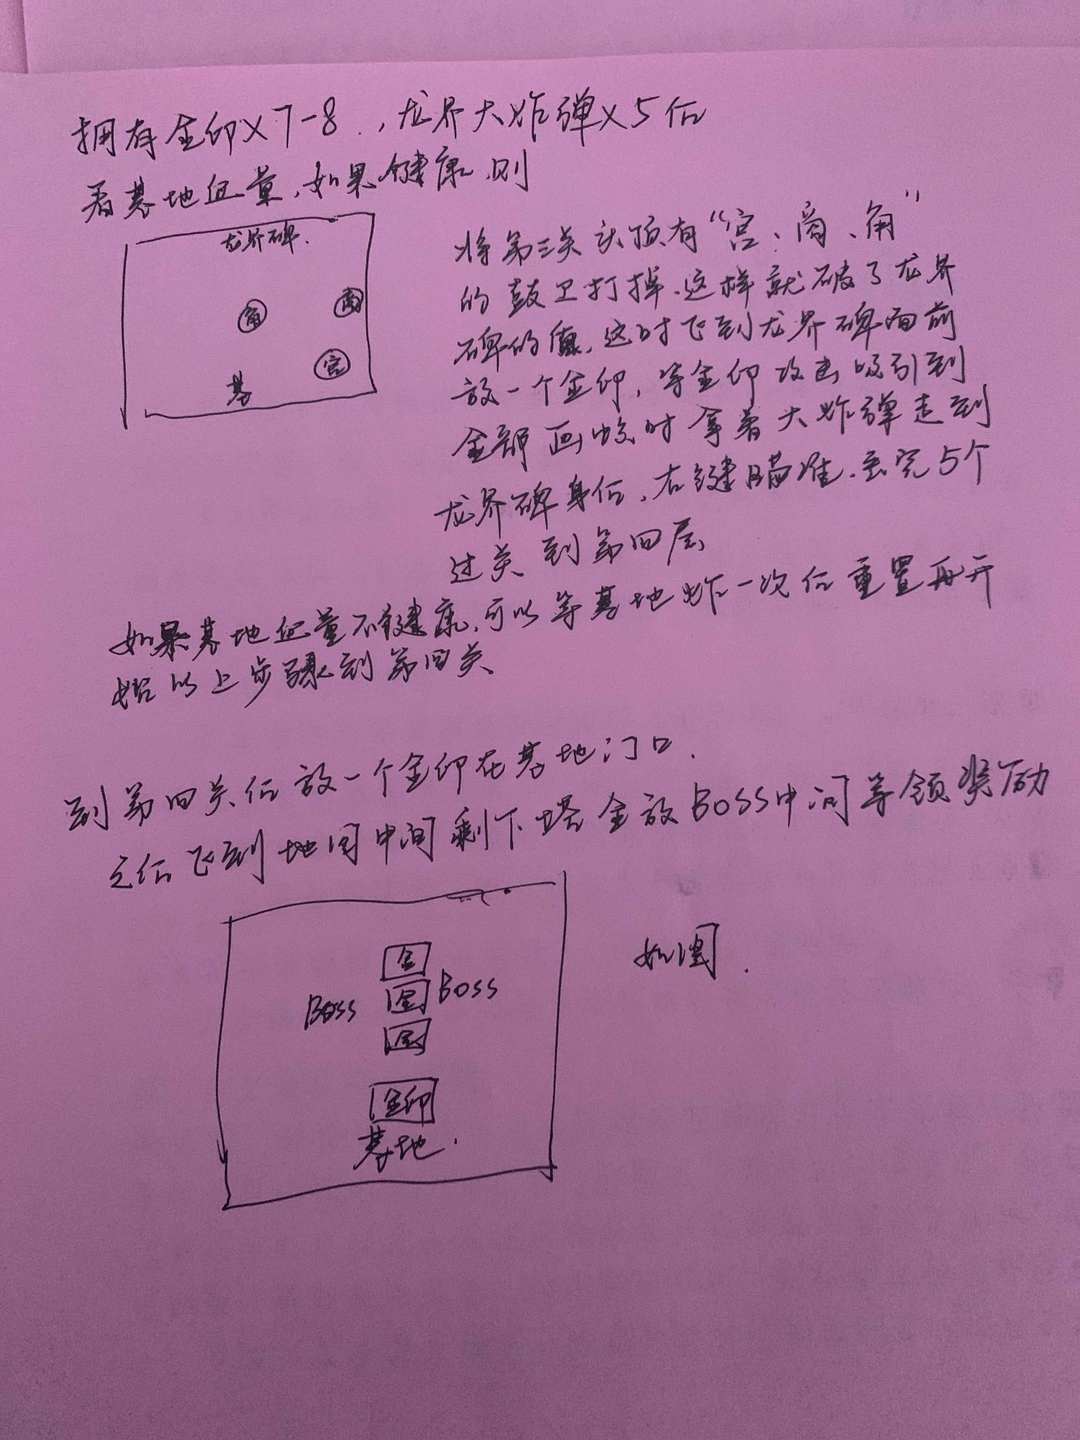 拥有金印×7-8，龙界大炸弹×5后
看基地血量，如果健康，则
龙界碑.
角
商
宫
基
将第三关头顶有“宫、商、角”
的鼓卫打掉.这样就破了龙界
碑的  ，这时飞到龙界碑面前
放一个金印，等金印攻击吸引到
全部  时拿着大炸弹走到
龙界碑身后，右键瞄准.丢完5个
过关到第四层
如果基地血量不健康，可以等基地炸一次后重置再开
始以上步骤到第四关
到第四关后放一个金印在基地门口.
之后飞到地图中间剩下塔全放BOSS中间等领奖励
如图.
金
Boss 金 Boss
金
金印
基地.